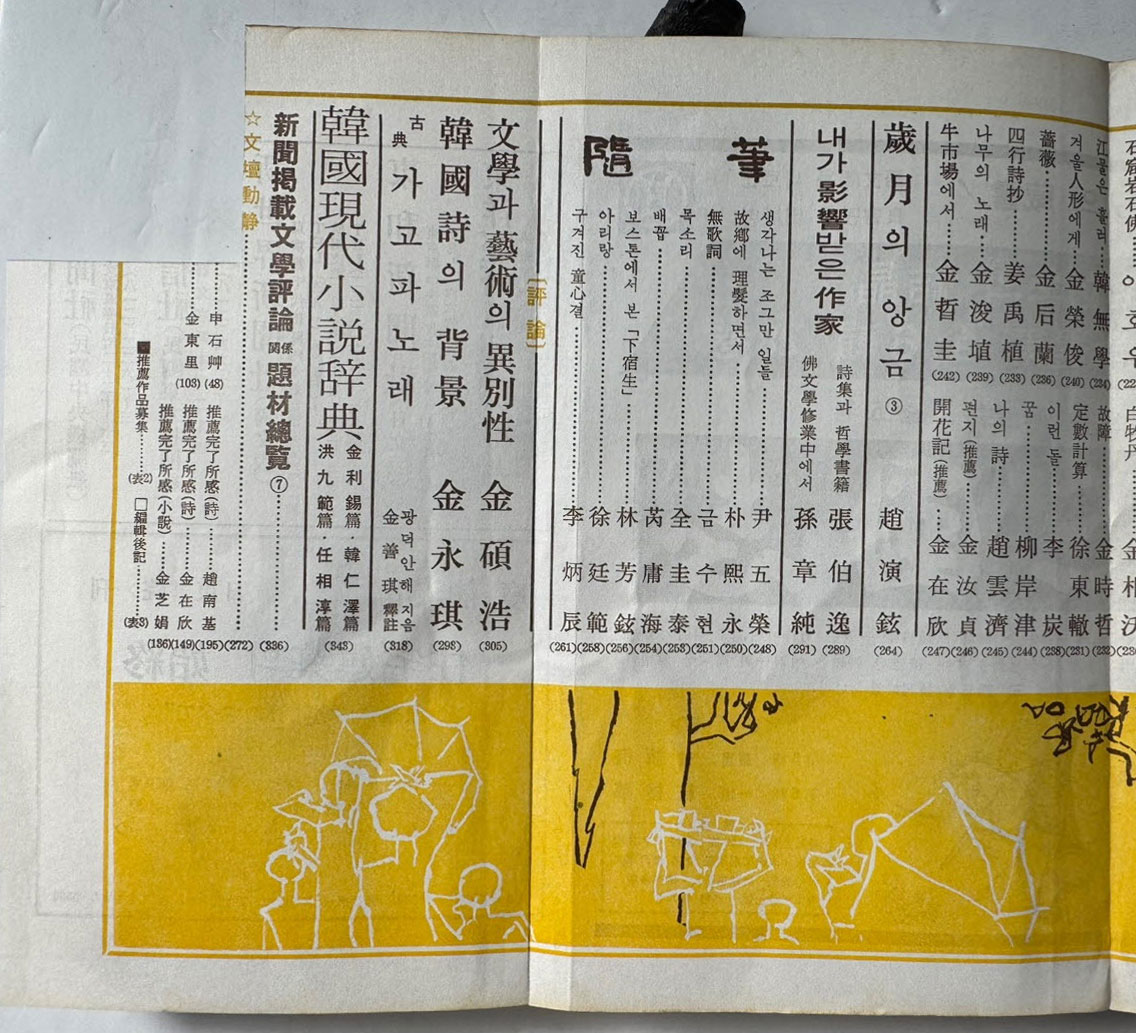 石窟岩石佛…이호우
白牧丹…金相沃
江물은 흘러…韓無學(234)
故障…金時哲(232)
겨울人形에게…金榮俊(240)
定數計算…徐東轍(231)
薔薇…金后蘭(236)
이런 돌…李炭(238)
四行詩抄…姜禹植(233)
꿈…柳岸津(244)
나무의 노래…金浚埴(239)
나의 詩…趙雲濟(245)
牛市場에서…金哲圭(242)
편지(推薦)…金汝貞(246)
開花記(推薦)…金在欣(247)
歲月의 앙금 ③ 趙演鉉(264)
내가 影響받은 作家
詩集과 哲學書籍 張伯逸(289)
佛文學修業中에서 孫章純(291)
隨筆
생각나는 조그만 일들…尹五榮(248)
故鄕에 理髮하면서…朴熙永(250)
無歌詞…금수현(251)
목소리…全圭泰(253)
배꼽…芮庸海(254)
보스톤에서 본「下宿生」…林芳鉉(256)
아리랑…徐廷範(258)
구겨진 童心결…李炳辰(261)
[評論]
文學과 藝術의 異別性 金碩浩(305)
韓國詩의 背景 金永琪(293)
古典 가고파노래 광덕안해 지음 金善琪 釋註(318)
韓國現代小說辞典 金利錫篇·韓仁澤篇 洪九範篇·任相淳篇(343)
新聞揭載文學評論 関係 題材總覧⑦…(336)
☆文壇動静…(272)
申石艸(48)
推薦完了所感(詩)…趙南基(195)
金東里(103)
推薦完了所感(詩)…金在欣(149)
推薦完了所感(小說)…金芝娟(136)
■推薦作品募集…(表2)
□編輯後記…(表3)